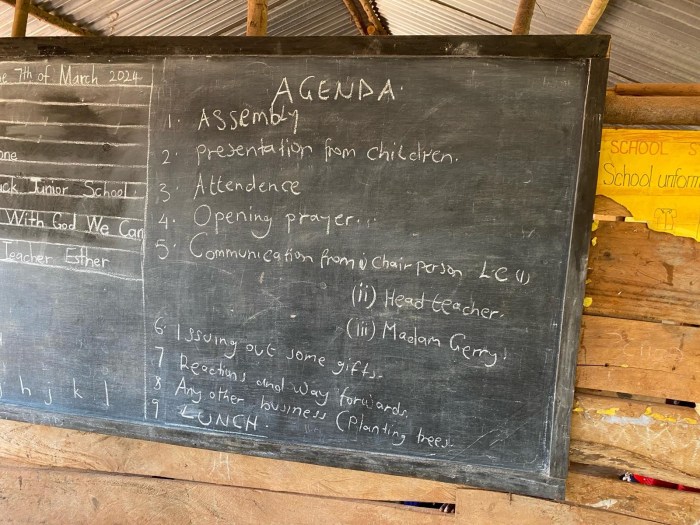 7th of March 2024
Junior School
With God We Can
Teacher Esther
h j k l
AGENDA.
1. Assembly
2. Presentation from children.
3. Attendence
4. Opening prayer...
5. Communication from i) Chair person L.C (1)
(ii) Head teacher.
(iii) Madam Gerry.
6. Issuing out some gifts.
7 Reactions and way forwards.
8 Any other business (Planting trees.
9 LUNCH.
SCHOOL
School uniform